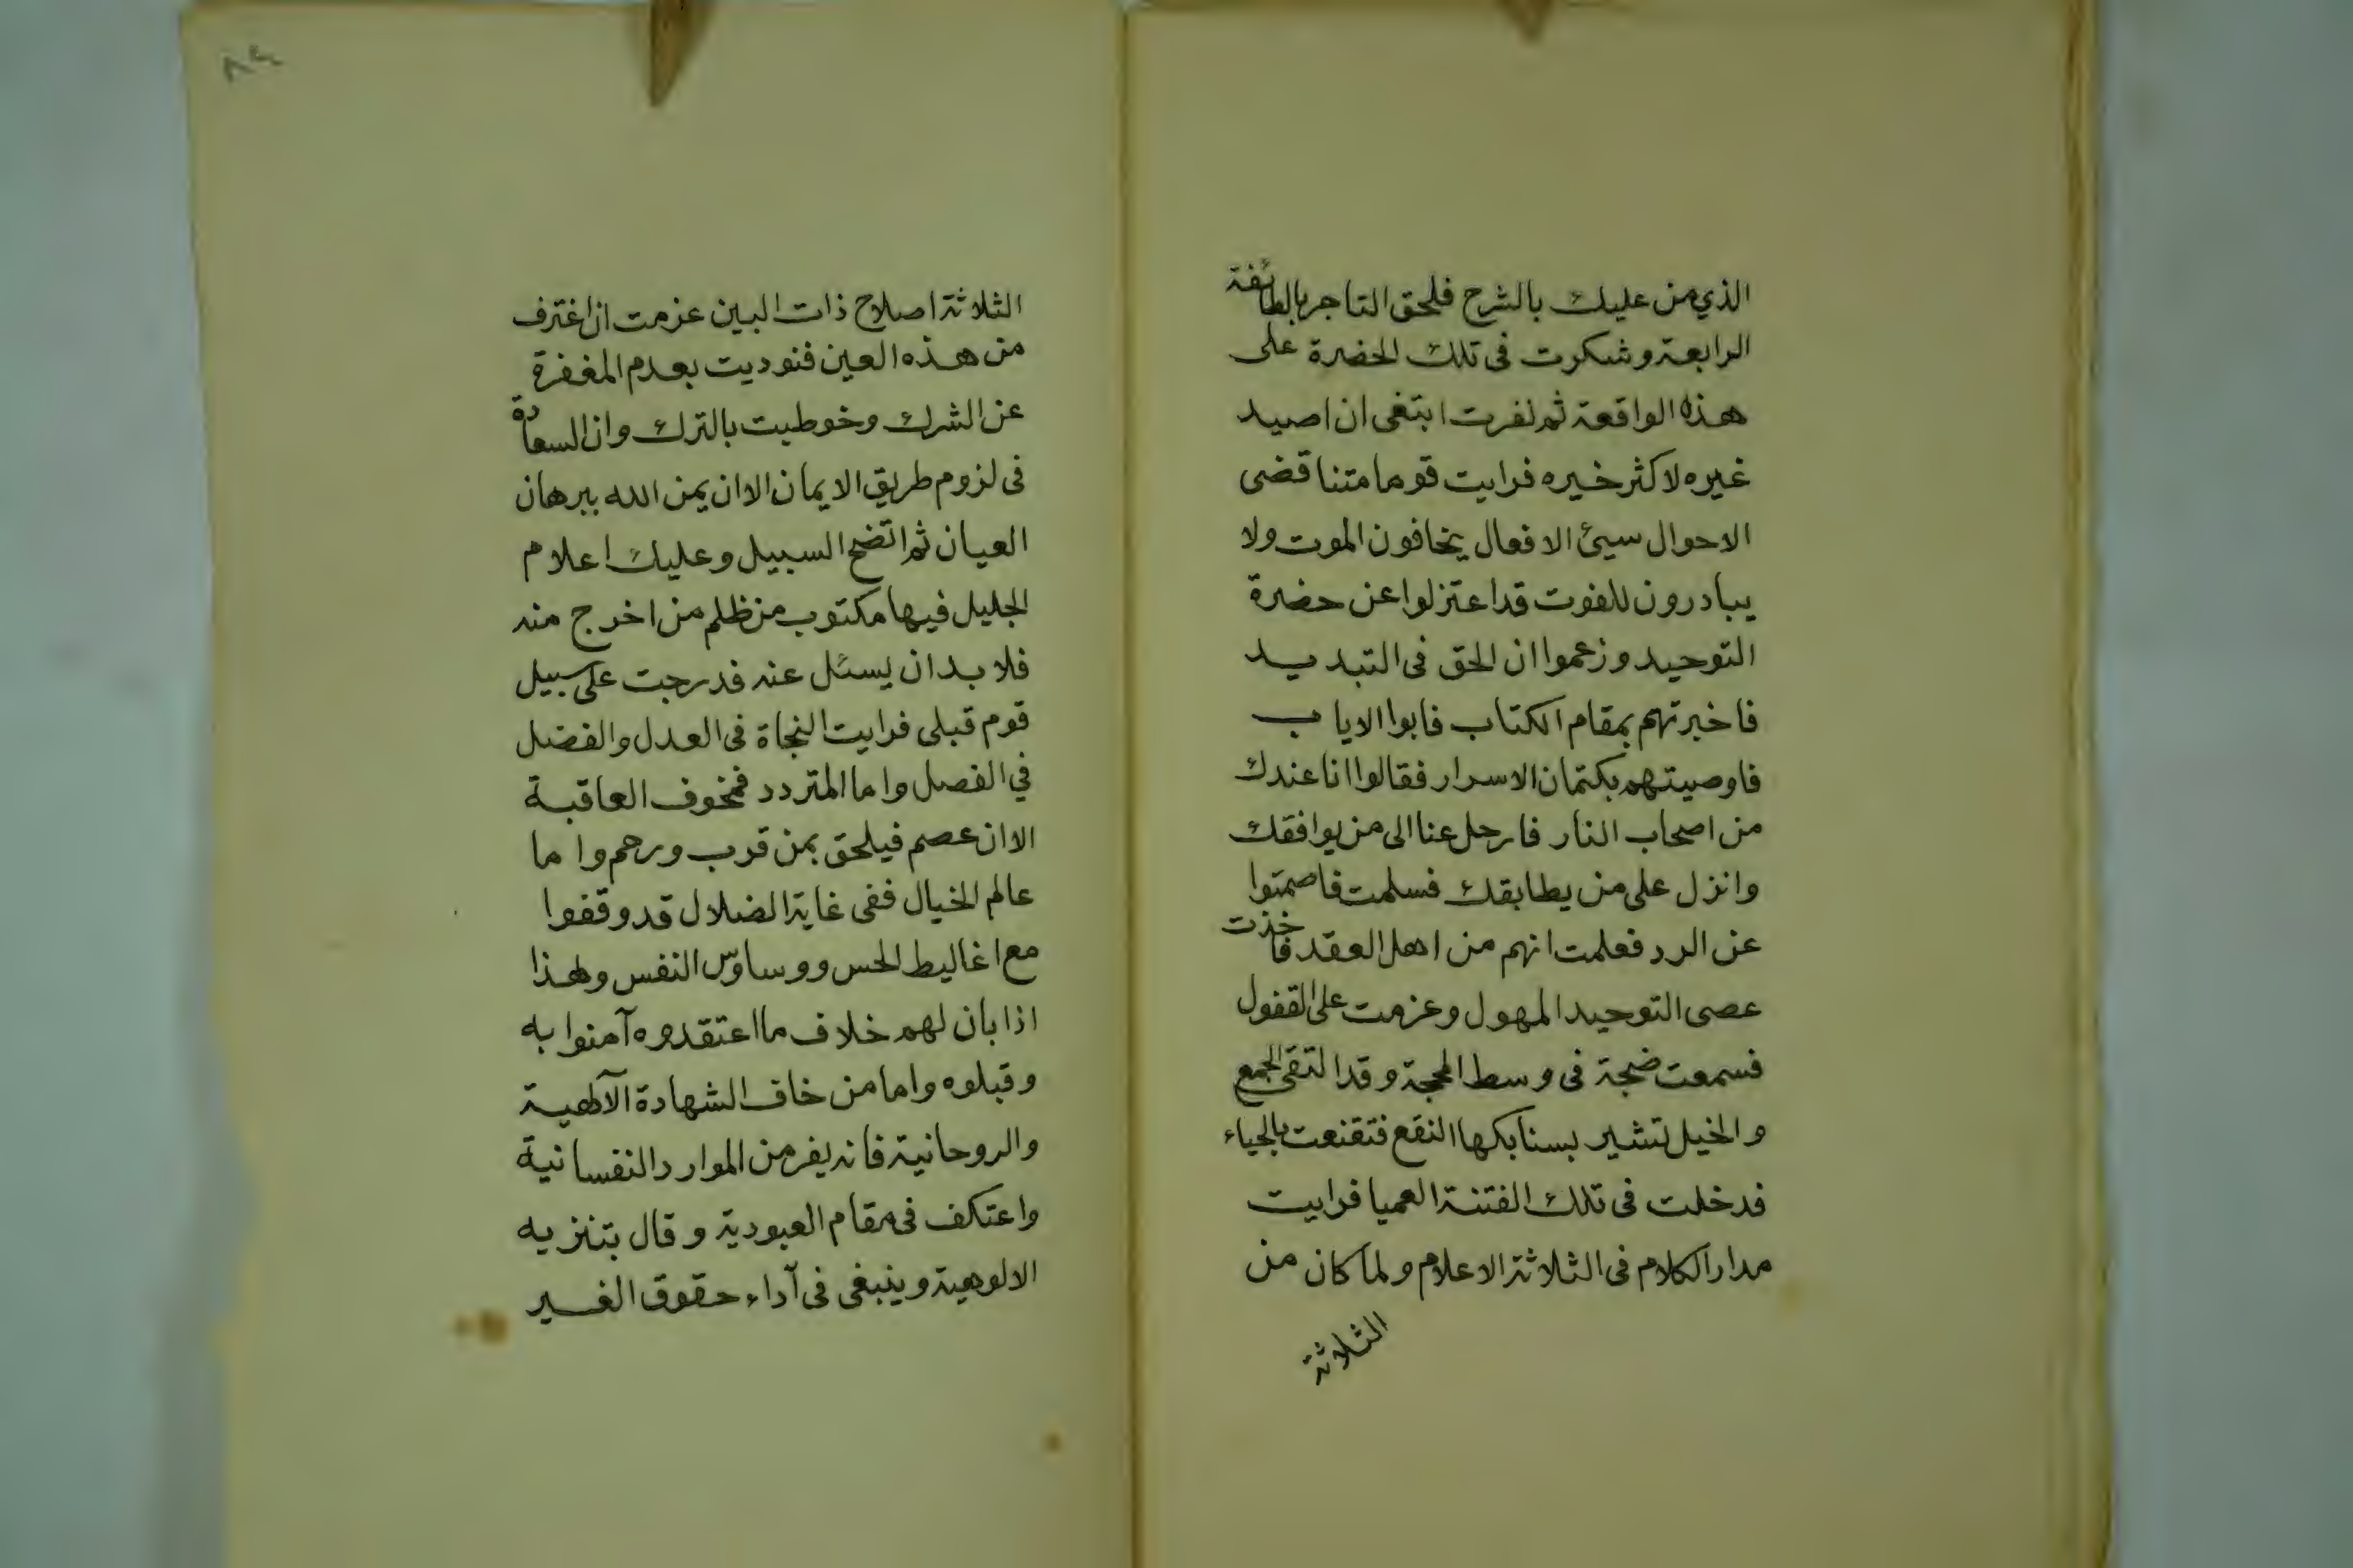 الذي من عليك بالشرح فلحق التاجر بالطائفة
الرابعة وشكرت فى تلك الحضرة على
هذه الواقعة ثم نفرت ابتغى ان اصيد
غيره لاكثر خيره فرايت قوما متناقضى
الاحوال سيئ الافعال يخافون الموت ولا
يبادرون للفوت قد اعتزلوا عن حضرة
التوحيد وزعموا ان الحق فى التبديد
فاخبرتهم بمقام الكتاب فابوا الاياب
فاوصيتهم بكتمان الاسرار فقالوا انا عندك
من اصحاب النار فارحل عنا الى من يوافقك
وانزل على من يطابقك فسلمت فاصمتوا
عن الرد فعلمت انهم من اهل العقد فاخذت
عصى التوحيد المهول وعزمت على القفول
فسمعت ضجة فى وسط المحجة وقد التقى الجمع
والخيل تشير بسنابكها النقع فتقنعت بالحياء
فدخلت فى تلك الفتنة العميا فرايت
مدار الكلام فى الثلاثة الاعلام ولما كان من
الثلاثة
الثلاثة اصلاح ذات البين عزمت ان اغترف
من هذه العين فنوديت بعدم المغفرة
عن الشرك وخوطبت بالترك وان السعادة
فى لزوم طريق الايمان الا ان يمن الله ببرهان
العيان ثم اتضح السبيل وعليك اعلام
الجليل فيها مكتوب من ظلم من اخرج منه
فلا بد ان يسئل عنه فدرجت على سبيل
قوم قبلى فرايت النجاة فى العدل والفضل
في الفصل واما المتردد فمخوف العاقبة
الا ان عصم فيلحق بمن قرب ورحم واما
عالم الخيال ففى غاية الضلال قد وقفوا
مع اغاليط الحس ووساوس النفس ولهذا
اذا بان لهم خلاف ما اعتقدوه آمنوا به
وقبلوه واما من خاف الشهادة الآلهية
والروحانية فانه يفر من الموارد النفسانية
واعتكف فى مقام العبودية وقال بتنزيه
الالوهية وينبغى فى آداء حقوق الغير